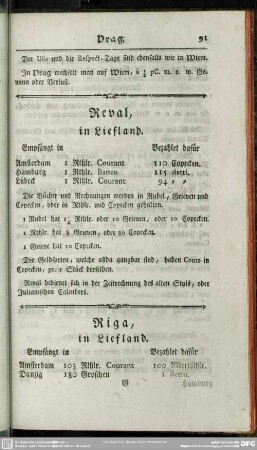 Prag. 91
Der Uso und die Respect-Tage sind ebenfalls wie in Wien.
In Prag wechselt man auf Wien, a ¼ pC. m. o. w. Ge-
winn oder Verlust.
Reval,
in Liefland.
Empfängt in Bezahlet dafür
Amsterdam 1 Rthlr. Courant 110 Copecken.
Hamburg 1 Rthlr. Banco 115 detti.
Lübeck 1 Rthlr. Courant 94 „ „
Die Bücher und Rechnungen werden in Rubel, Grieven und
Copecken, oder in Rthlr. und Copecken gehalten.
1 Rubel hat Rthlr. oder 10 Grieven, oder 100 Copecken.
1 Rthlr. hat 8 Grieven, oder 80 Copecken.
1 Grieve hat 10 Copecken.
Die Geldsorten, welche allda gangbar sind, haben Cours in
Copecken, pr. 1 Stück derselben.
Reval bedienet sich in der Zeitrechnung des alten Styls, oder
Julianischen Calenders.
Riga,
in Liefland.
Empfängt in Bezahlet dafür
Amsterdam 103 Rthlr. Courant 100 Alberttsthlr.
Danzig 180 Groschen 1 detto.
G Hamburg